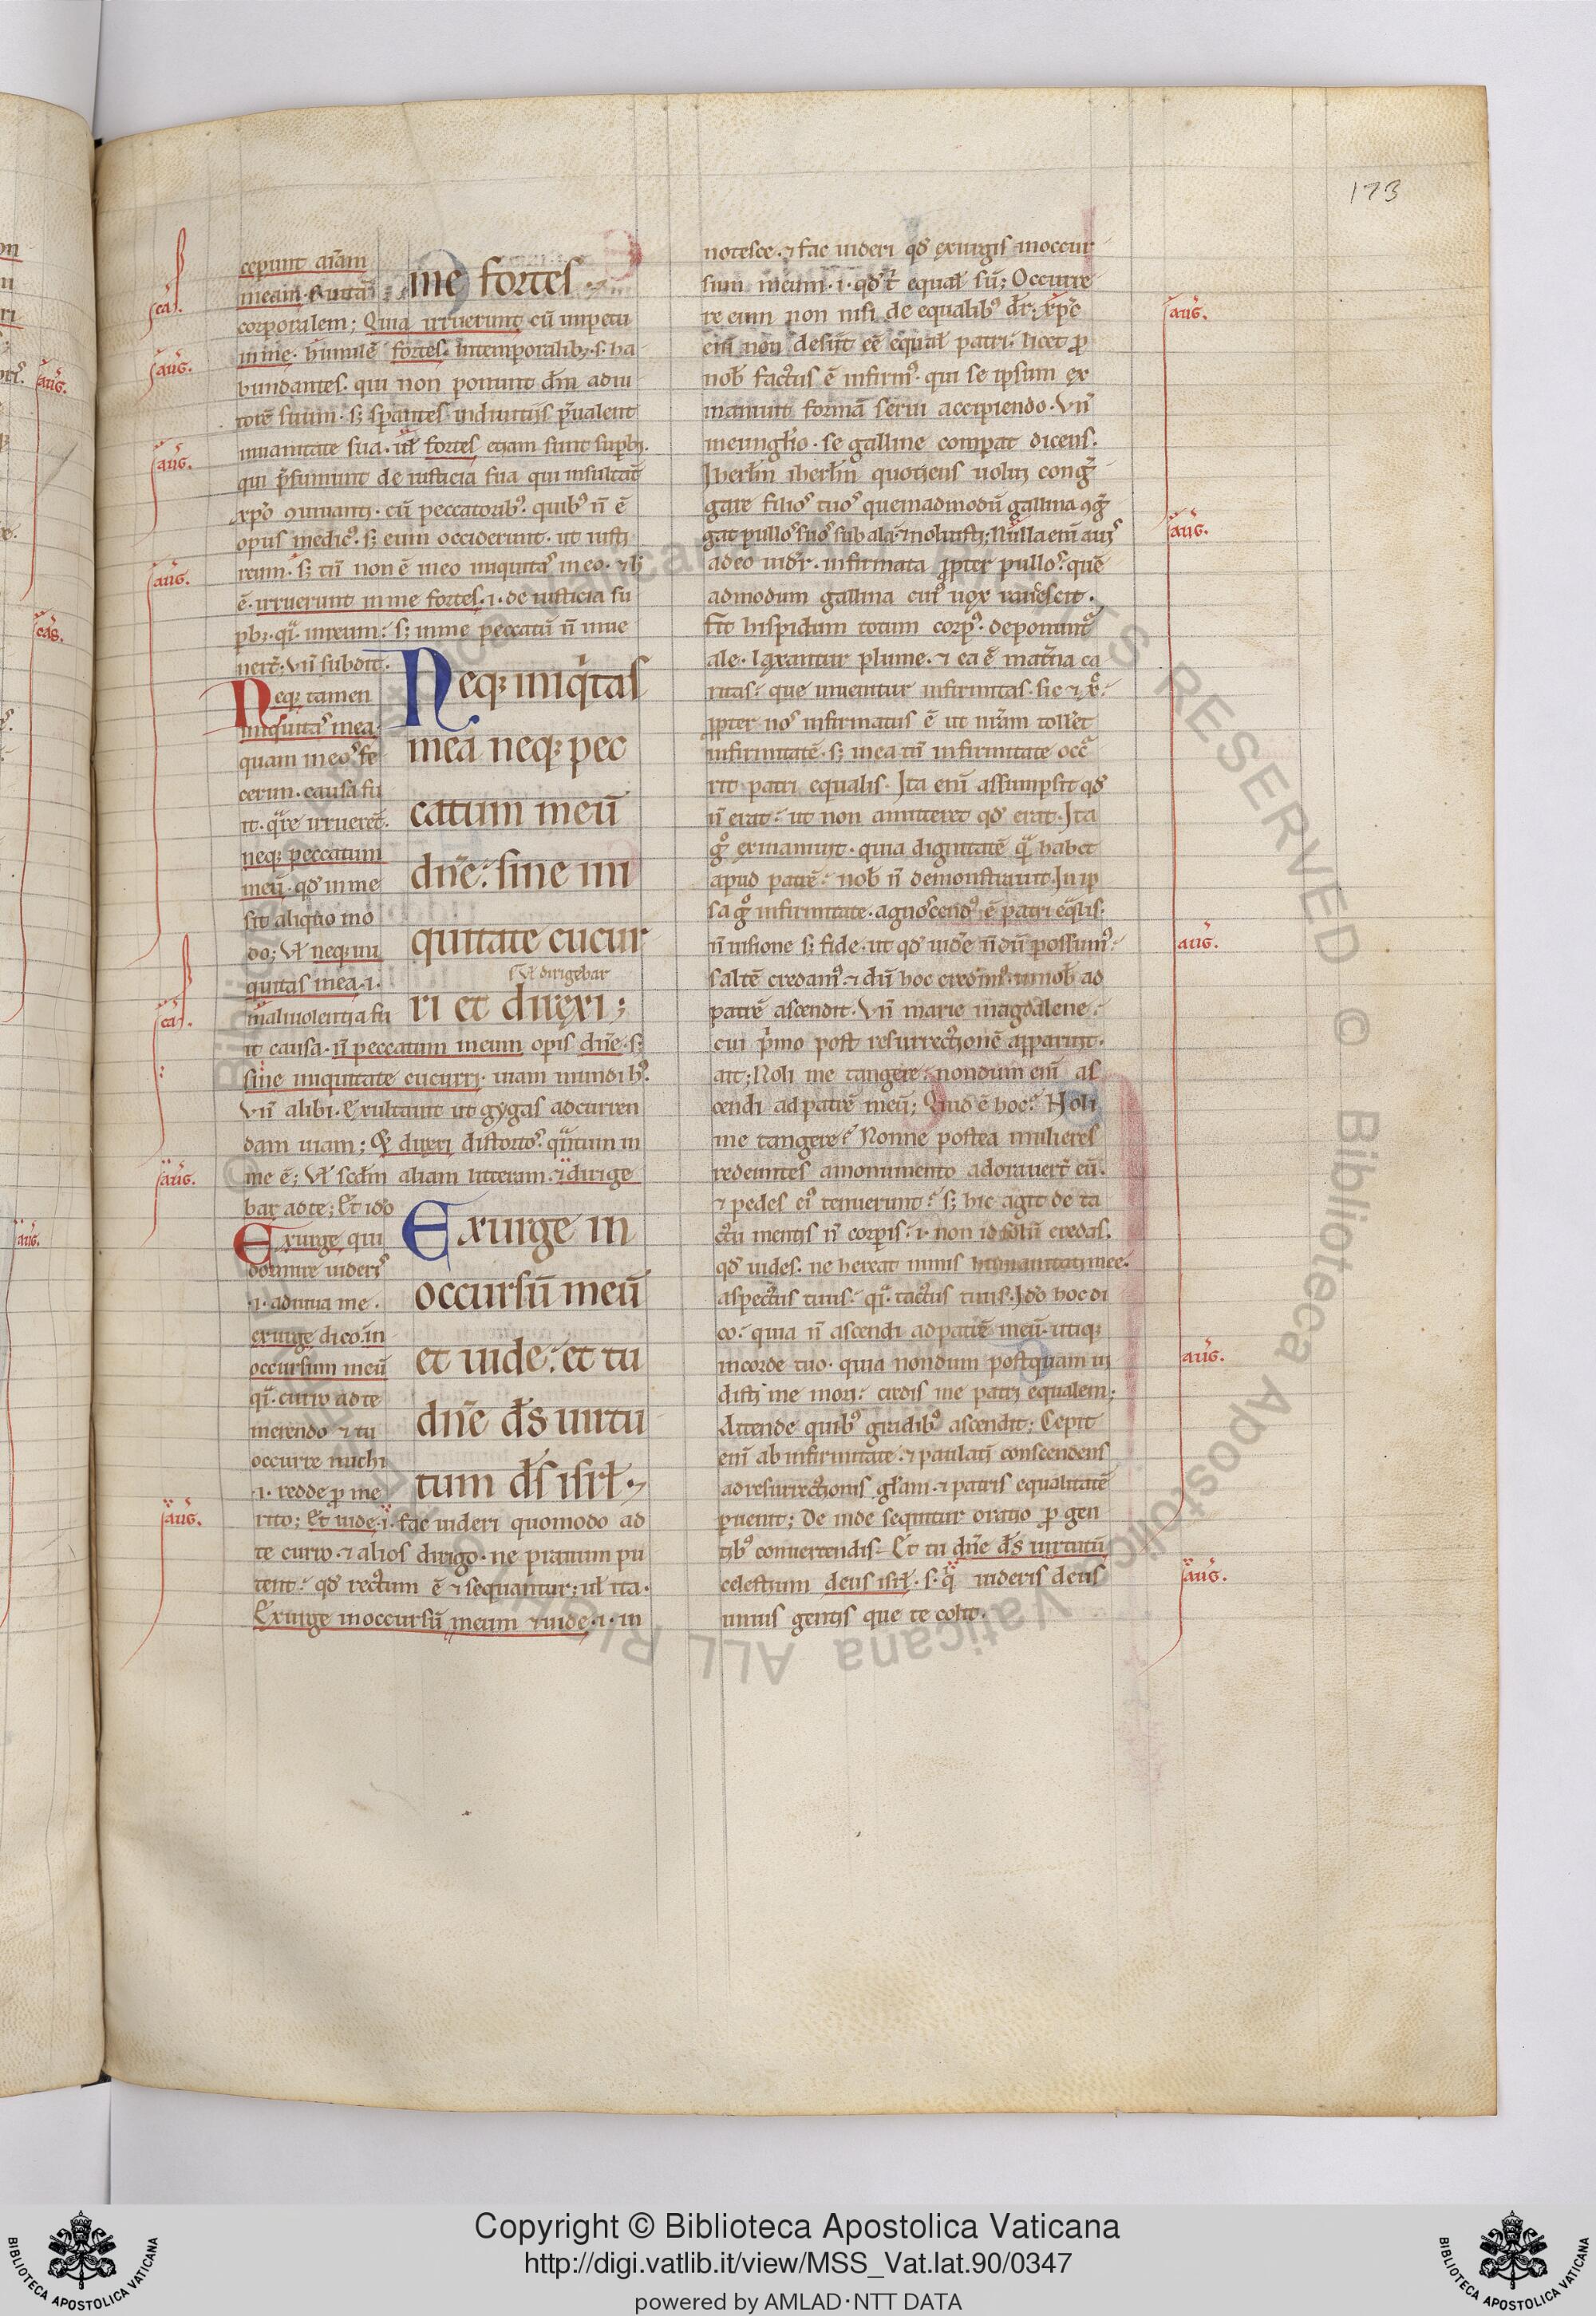 173
cepunt aīam
meam .s. uitā
me fortes.
corporalem; Quia irruerunt cū impetu
in me. humilē fortes. in temporalibꝫ. s. ha
bundantes. qui non ponunt dm̄ adiu
torē suum. sꝫ sperantes in diuitijs p̄ualent
in uanitate sua. ul̄ fortes etiam sunt supbi.
qui p̄sumunt de iusticia sua qui insultāt
xp̄o ꝯuiuanti. cū peccatoribꝰ. quibꝰ ñ ē
opus medicꝰ. sꝫ eum occiderunt. ut iusti
reum. sꝫ tn̄ non ē meo iniquitas in eo. ⁊ h̄
ē. irruerunt in me fortes. i. de iusticia su
pbi. qͣ. in reum: sꝫ in me peccatū ñ inue
nerc̄; vn̄ subdit.
Neqꝫ iniqͥtas
mea neqꝫ pec
catum meū
dn̄e: sine ini
quitate cucur
s. ul̄ dirigebar
ri et direxi;
Neqꝫ tamen
iniquitas mea
quam in eos fe
cerim. causa fu
it. qͣre irruerēt.
neqꝫ peccatum
meū. qđ in me
sit aliquo mo
do; Vl̄ neqꝫ ini
quitas mea. i.
maliuolentia fu
it causa. ñ peccatum meum opis dn̄e. sꝫ
sine iniquitate cucurri. uiam mundi hꝰ.
Vn̄ alibi. Exultauit ut gygas ad curren
dam uiam; Et direxi distortos. qͣntum in
me ē; Vl̄ scdm̄ aliam litteram. ⁊ dirige
bar ad te; Et ido
Exurge in
occursū meū
et uide: et tu
dn̄e ds̄ uirtu
tum ds̄ isrl̄.
Exurge qui
dormire uideris
.i. adiuua me.
exurge dico. in
occursum meū
qͣ. curro ad te
merendo ⁊ tu
occurre michi
.i. redde p me
rito; Et uide. i. fac uideri quomodo ad
te curro. ⁊ alios dirigo. ne prauum pu
tent: qđ rectum ē ⁊ sequantur; ul̄ ita.
Exurge in occursū meum ⁊ uide. i. in
notesce. ⁊ fac uideri qđ exurgis in occur
sum meum. i. qđ t̄ equal̄ sū; Occurre
re enim non nisi de equalibꝰ dr̄. xp̄c
eni non desiit eē equal̄ patri. licet p
nob̄ factus ē infirmꝰ. qui se ipsum ex
inaniuit formā serui accipiendo. Vn̄
in eunglīo. se galline comparat dicens.
Iherlm̄ iherlm̄ quotiens uolui cong̃
gare filios tuos quemadmodū gallina ꝯg̃
gat pullos suos sub alā. ⁊ noluisti; Nulla enī auis
adeo uidr̄. infirmata ꝓpter pullos. quē
admodum gallina cuiꝰ uox raucescit.
fit hispidum totum corpꝰ. deponunt
ale. laxantur plume. ⁊ ea ē mat̄na ca
ritas. que inuenitur infirmitas. sic ⁊ x̄c
ꝓpter nos infirmatus ē ut nr̄am tolleret
infirmitatē. sꝫ mea tn̄ infirmitate occ̄
rit patri equalis. Ita enī assumpsit qđ
ñ erat: ut non amitteret qđ erat. Ita
gͦ exinaniuit. quia dignitatē qͣ habet
apud patrē. nob̄ ñ demonstrauit. In ip
sa gͦ infirmitate. agnoscendꝰ ē patri eqͣlis.
ñ uisione sꝫ fide. ut qđ uidē ñdū possumꝰ.
saltē credamꝰ. ⁊ dū hoc credimꝰ. in nob̄ ad
patrē ascendit. Vn̄ marie magdalene.
cui pͥmo post resurrectionē apparuit.
ait; Noli me tangere. nondum enī as
cendi ad patrē meū; Quid ē hoc? Noli
me tangere? Nonne postea mulieres
redeuntes a monumento adorauerc̄ eū.
⁊ pedes eiꝰ tenuerunt? sꝫ hic agit de ta
ctu mentis ñ corpis. i. non id solū credas,
qđ uides. ne hereat nimis humanitati mee.
aspectus tuus. qͣ. tactus tuus. Ido hoc di
co. quia ñ ascendi ad patrē meū. utiqꝫ
in corde tuo. quia nondum postquam ui
disti me mori. credis me patri equalem;
Attende quibꝰ gradibꝰ ascendit; Cepit
enī ab infirmitate. ⁊ paulatī conscendens
ad resurrectionis glam̄. ⁊ patris equalitatē
puenit; De inde sequitur oratio p gen
tibꝰ conuertendis. Et tu dn̄e ds̄ uirtutū
celestium deus isrl̄. s. qͥ uideris deus
unius gentis que te colit.
cas.
aug.
aug.
aug.
cas.
aug.
aug.
aug.
aug.
aug.
aug.
aug.
Copyright © Biblioteca Apostolica Vaticana
http://digi.vatlib.it/view/MSS_Vat.lat.90/0347
powered by AMLAD·NTT DATA
BIBLIOTECA APOSTOLICA VATICANA
BIBLIOTECA APOSTOLICA VATICANA